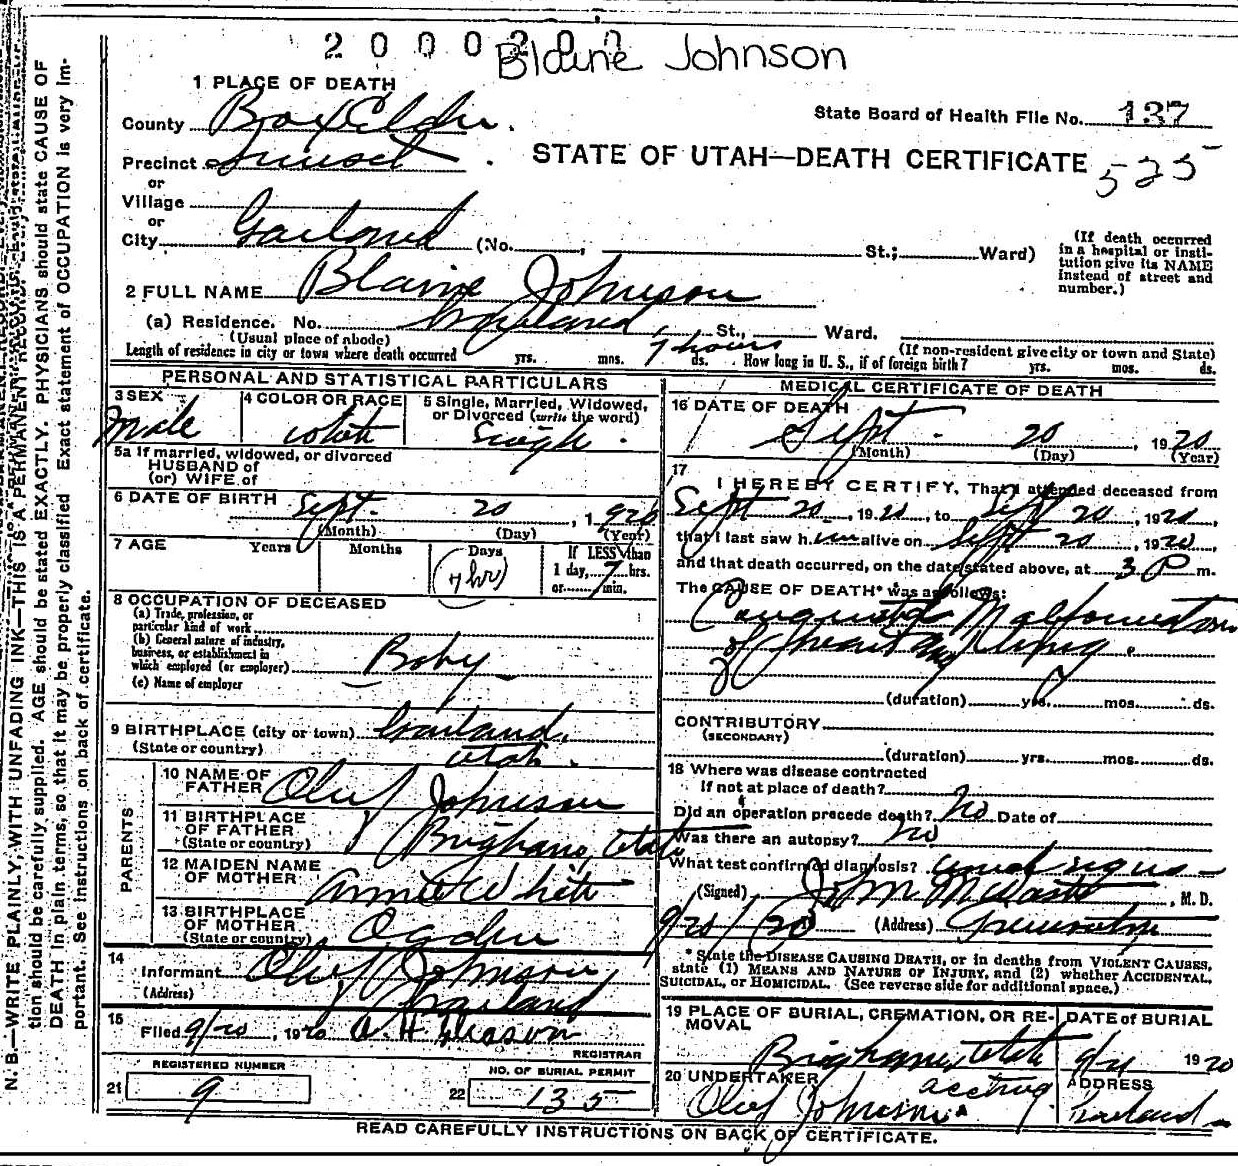 2 0 0 0 2 0 7
Blaine Johnson
1 PLACE OF DEATH
County Box Elder.
State Board of Health File No. 137
Precinct Sunset.
STATE OF UTAH—DEATH CERTIFICATE
525
or
Village
or
City Garland (No. , St.; Ward)
(If death occurred
in a hospital or insti-
tution give its NAME
instead of street and
number.)
2 FULL NAME Blaine Johnson
(a) Residence. No. Garland, St., Ward.
(Usual place of abode)
(If non-resident give city or town and State)
Length of residence in city or town where death occurred yrs. mos. 7 hours ds. How long in U. S., if of foreign birth? yrs. mos. ds.
PERSONAL AND STATISTICAL PARTICULARS
3 SEX
Male
4 COLOR OR RACE
White
5 Single, Married, Widowed,
or Divorced (write the word)
Single.
5a If married, widowed, or divorced
HUSBAND of
(or) WIFE of
6 DATE OF BIRTH Sept. 20, 1920
(Month) (Day) (Year)
7 AGE Years Months Days
(7 hr)
If LESS than
1 day, 7 hrs.
or min.
8 OCCUPATION OF DECEASED
(a) Trade, profession, or
particular kind of work
(b) General nature of industry,
business, or establishment in
which employed (or employer) Baby
(c) Name of employer
9 BIRTHPLACE (city or town) Garland,
(State or country) Utah.
PARENTS
10 NAME OF
FATHER Oluf Johnson
11 BIRTHPLACE
OF FATHER
(State or country) Brigham, Utah
12 MAIDEN NAME
OF MOTHER Annie White
13 BIRTHPLACE
OF MOTHER
(State or country) Ogden
14
Informant Oluf Johnson,
(Address) Garland
15
Filed 9/20, 1920 A. H. Gleason
REGISTRAR
REGISTERED NUMBER
21 9
NO. OF BURIAL PERMIT
22 135
MEDICAL CERTIFICATE OF DEATH
16 DATE OF DEATH
Sept. 20, 1920
(Month) (Day) (Year)
17
I HEREBY CERTIFY, That I attended deceased from
Sept 20, 1920, to Sept 20, 1920,
that I last saw him alive on Sept 20, 1920,
and that death occurred, on the date stated above, at 3 P m.
The CAUSE OF DEATH* was as follows:
Congenital Malformation
of heart and lung.
(duration) yrs. mos. ds.
CONTRIBUTORY
(SECONDARY)
(duration) yrs. mos. ds.
18 Where was disease contracted
If not at place of death?
Did an operation precede death? No Date of
Was there an autopsy? No
What test confirmed diagnosis? signs
(Signed) John M , M. D.
9/20/20 (Address) Tremonton
* State the DISEASE CAUSING DEATH, or in deaths from VIOLENT CAUSES,
state (1) MEANS AND NATURE OF INJURY, and (2) whether ACCIDENTAL,
SUICIDAL, or HOMICIDAL. (See reverse side for additional space.)
19 PLACE OF BURIAL, CREMATION, OR RE-
MOVAL
Brigham, Utah
DATE of BURIAL
9/21 1920
20 UNDERTAKER acting
Oluf Johnson.
ADDRESS
Garland
READ CAREFULLY INSTRUCTIONS ON BACK OF CERTIFICATE.
N. B.—WRITE PLAINLY, WITH UNFADING INK—THIS IS A PERMANENT RECORD.
tion should be carefully supplied. AGE should be stated EXACTLY. PHYSICIANS should state CAUSE OF
DEATH in plain terms, so that it may be properly classified Exact statement of OCCUPATION is very im-
portant. See instructions on back of certificate.